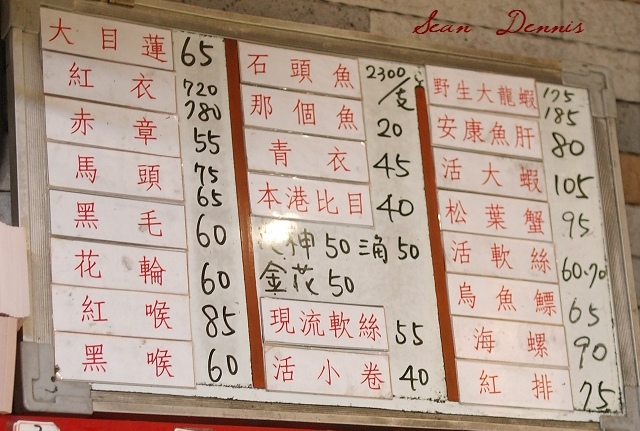 Sean Dennis
大目蓮 65
紅衣 720 780
赤章 55
馬頭 75 65
黑毛 60
花輪 60
紅喉 85
黑喉 60
石頭魚 2300/支
那個魚 20
青衣 45
本港比目 40
神50 三角50
金花50
現流軟絲 55
活小卷 40
野生大龍蝦 175 185
安康魚肝 80
活大蝦 105
松葉蟹 95
活軟絲 60.70
烏魚鰾 65
海螺 90
紅排 75